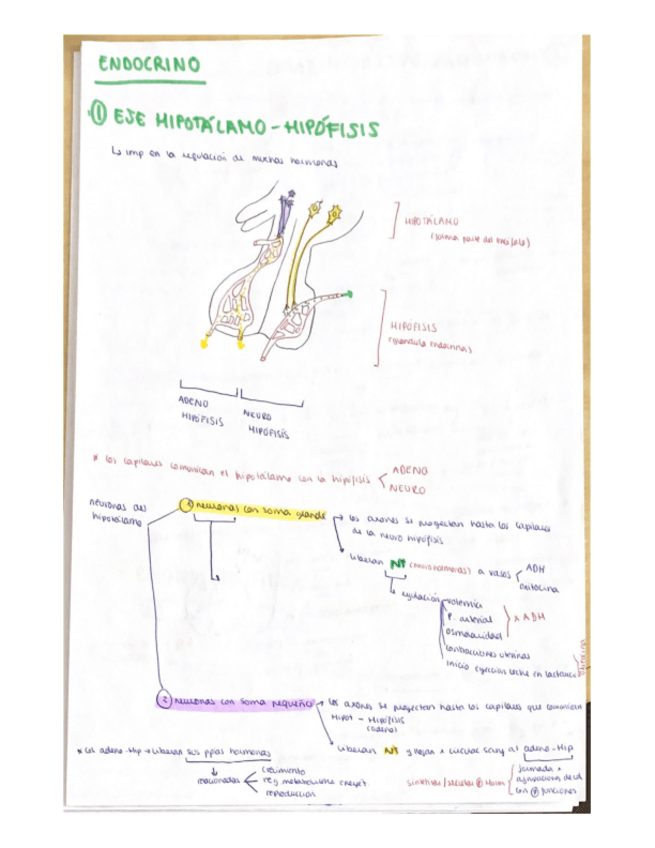 ENDOCRINO
① EJE HIPOTÁLAMO - HIPÓFISIS
↳ imp en la regulación de muchas hormonas
HIPOTÁLAMO
(forma parte del encéfalo)
HIPÓFISIS
(glándula endocrina)
ADENO
HIPÓFISIS
NEURO
HIPÓFISIS
* los capilares comunican el hipotálamo con la hipófisis
ADENO
NEURO
neuronas del
hipotálamo
① neuronas con soma grande
→ los axones se proyectan hasta los capilares
de la neuro hipófisis
liberan NT (neurohormonas) a vasos
ADH
oxitocina
regulación
volemia
P. arterial
osmolaridad
x ADH
contracciones uterinas
inicio eyección leche en lactancia
oxitocina
② neuronas con soma pequeño
→ los axones se proyectan hasta los capilares que comunican
Hipot - Hipófisis
(adeno)
liberan NT y viajan x circulac sang al adeno-Hip
* La adeno-Hip → liberan sus ppias hormonas
relacionadas
crecimiento
reg metabolismo energét.
reproducción
sintetizar/secretar ≠ Horm
formada x
agrupaciones de cel
con ≠ funciones